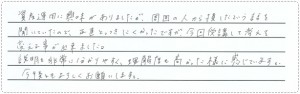 資産運用に興味がありましたが、周囲の人から損したという話を
聞いていたので、正直とっつきにくかったですが今回勉強して考えを
変える事が出来ました。
説明も非常にわかりやすく、理解度も高かった様に感じています。
今後ともよろしくお願いします。